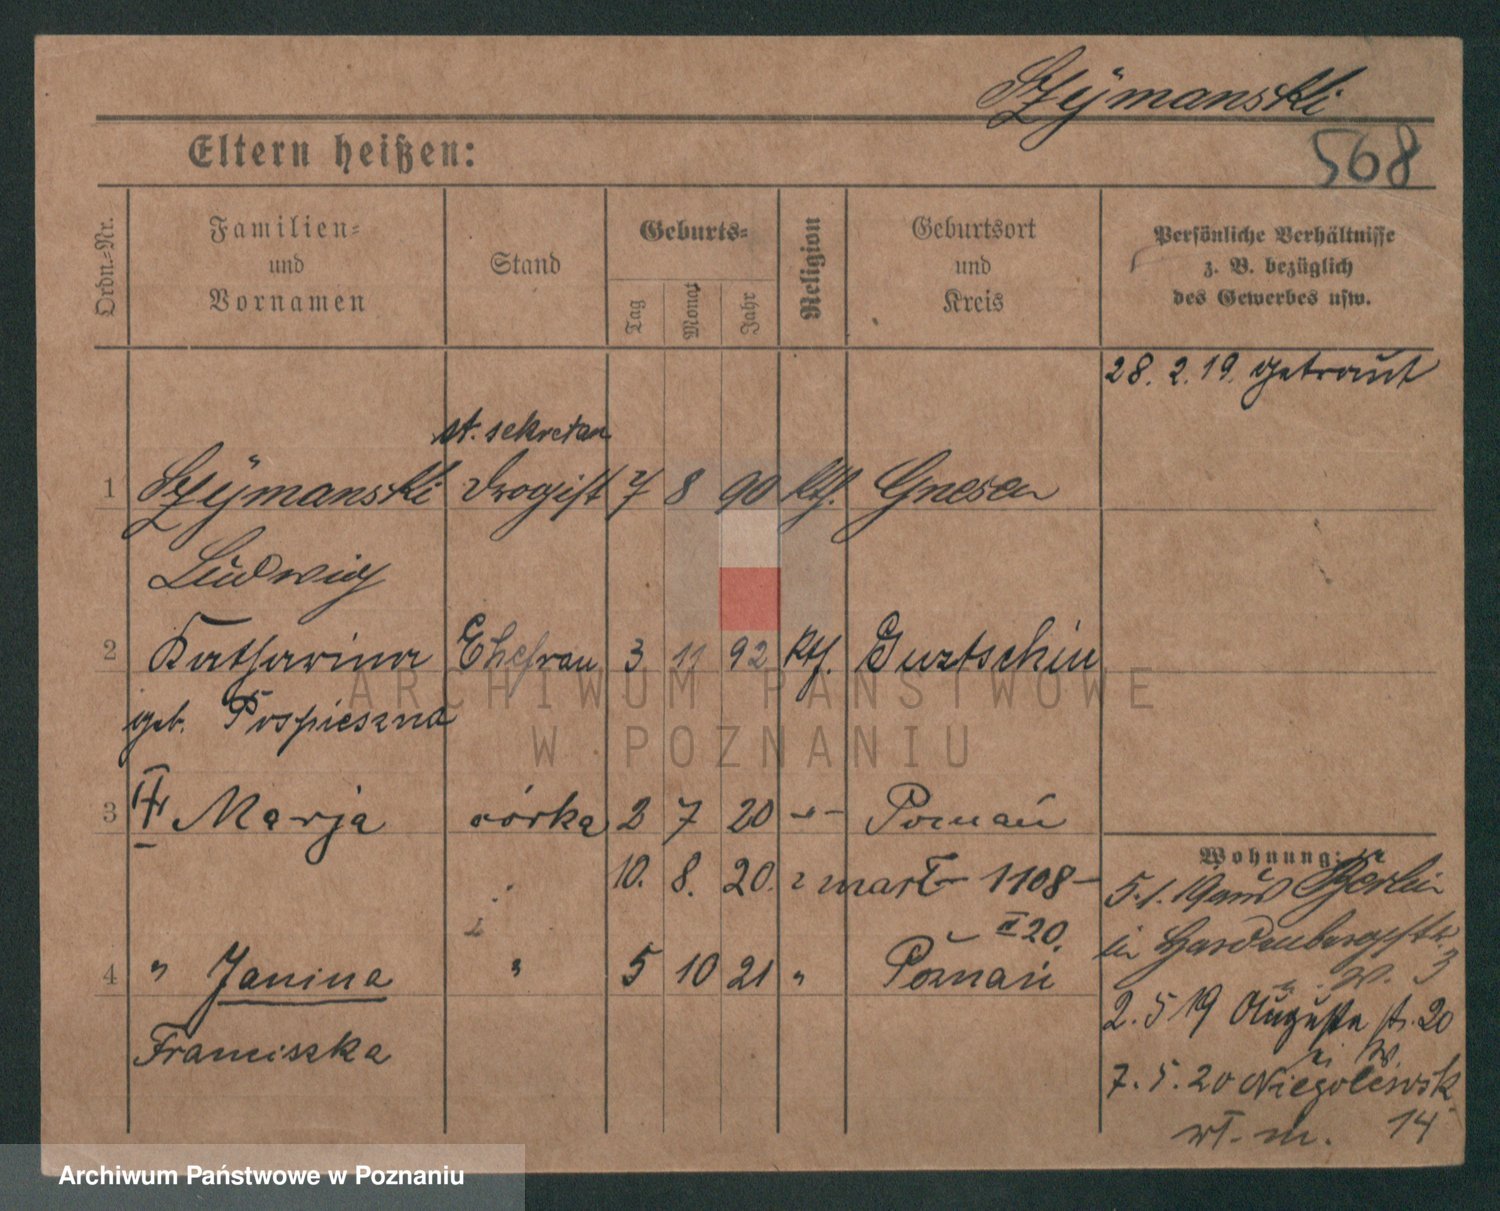 Szÿmanski
568
Eltern heißen:
Ordn.-Nr.
Familien-
und
Vornamen
Stand
Geburts-
Tag
Monat
Jahr
Religion
Geburtsort
und
Kreis
Persönliche Verhältnisse
z. B. bezüglich
des Gewerbes usw.
28. 2. 19. getraut
st. sekretar
1 Szÿmanski Drogist 7 8 90 Kth. Gnesen
Ludwig
2 Katharina Ehefrau 3 11 92 Kth. Gurtschin
geb. Pospieszna
3 Marja córka 2 7 20 -"- Poznań
10. 8. 20. zmarł 1108
II 20.
4 " Janina " 5 10 21 " Poznań
Franciszka
Wohnung:
5. 1. 19 aus Berlin
in Hardenbergstr.
3
2. 5 19 Augusta str. 20
7. 5. 20 Niegolewsk
14
ARCHIWUM PAŃSTWOWE
W POZNANIU
Archiwum Państwowe w Poznaniu